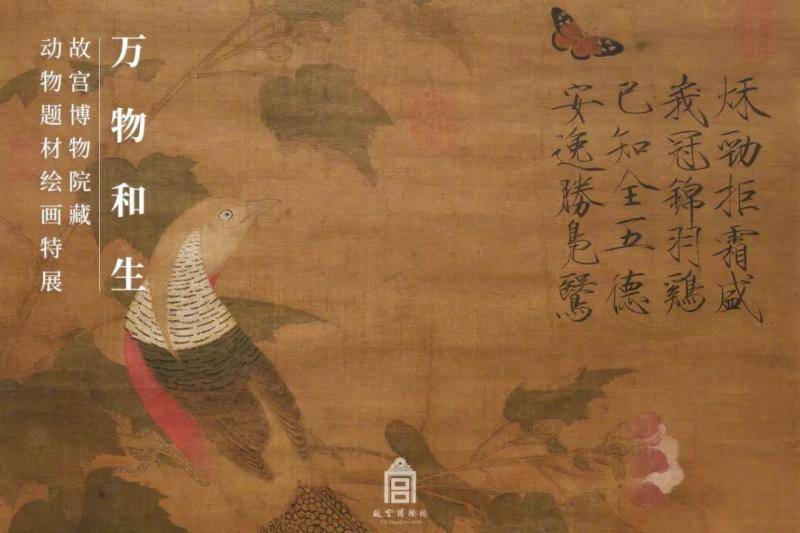 万物和生
故宫博物院藏
动物题材绘画特展
秌勁拒霜盛
峩冠錦羽鷄
已知全五德
安逸勝鳧鷖
故宫博物院
THE PALACE MUSEUM